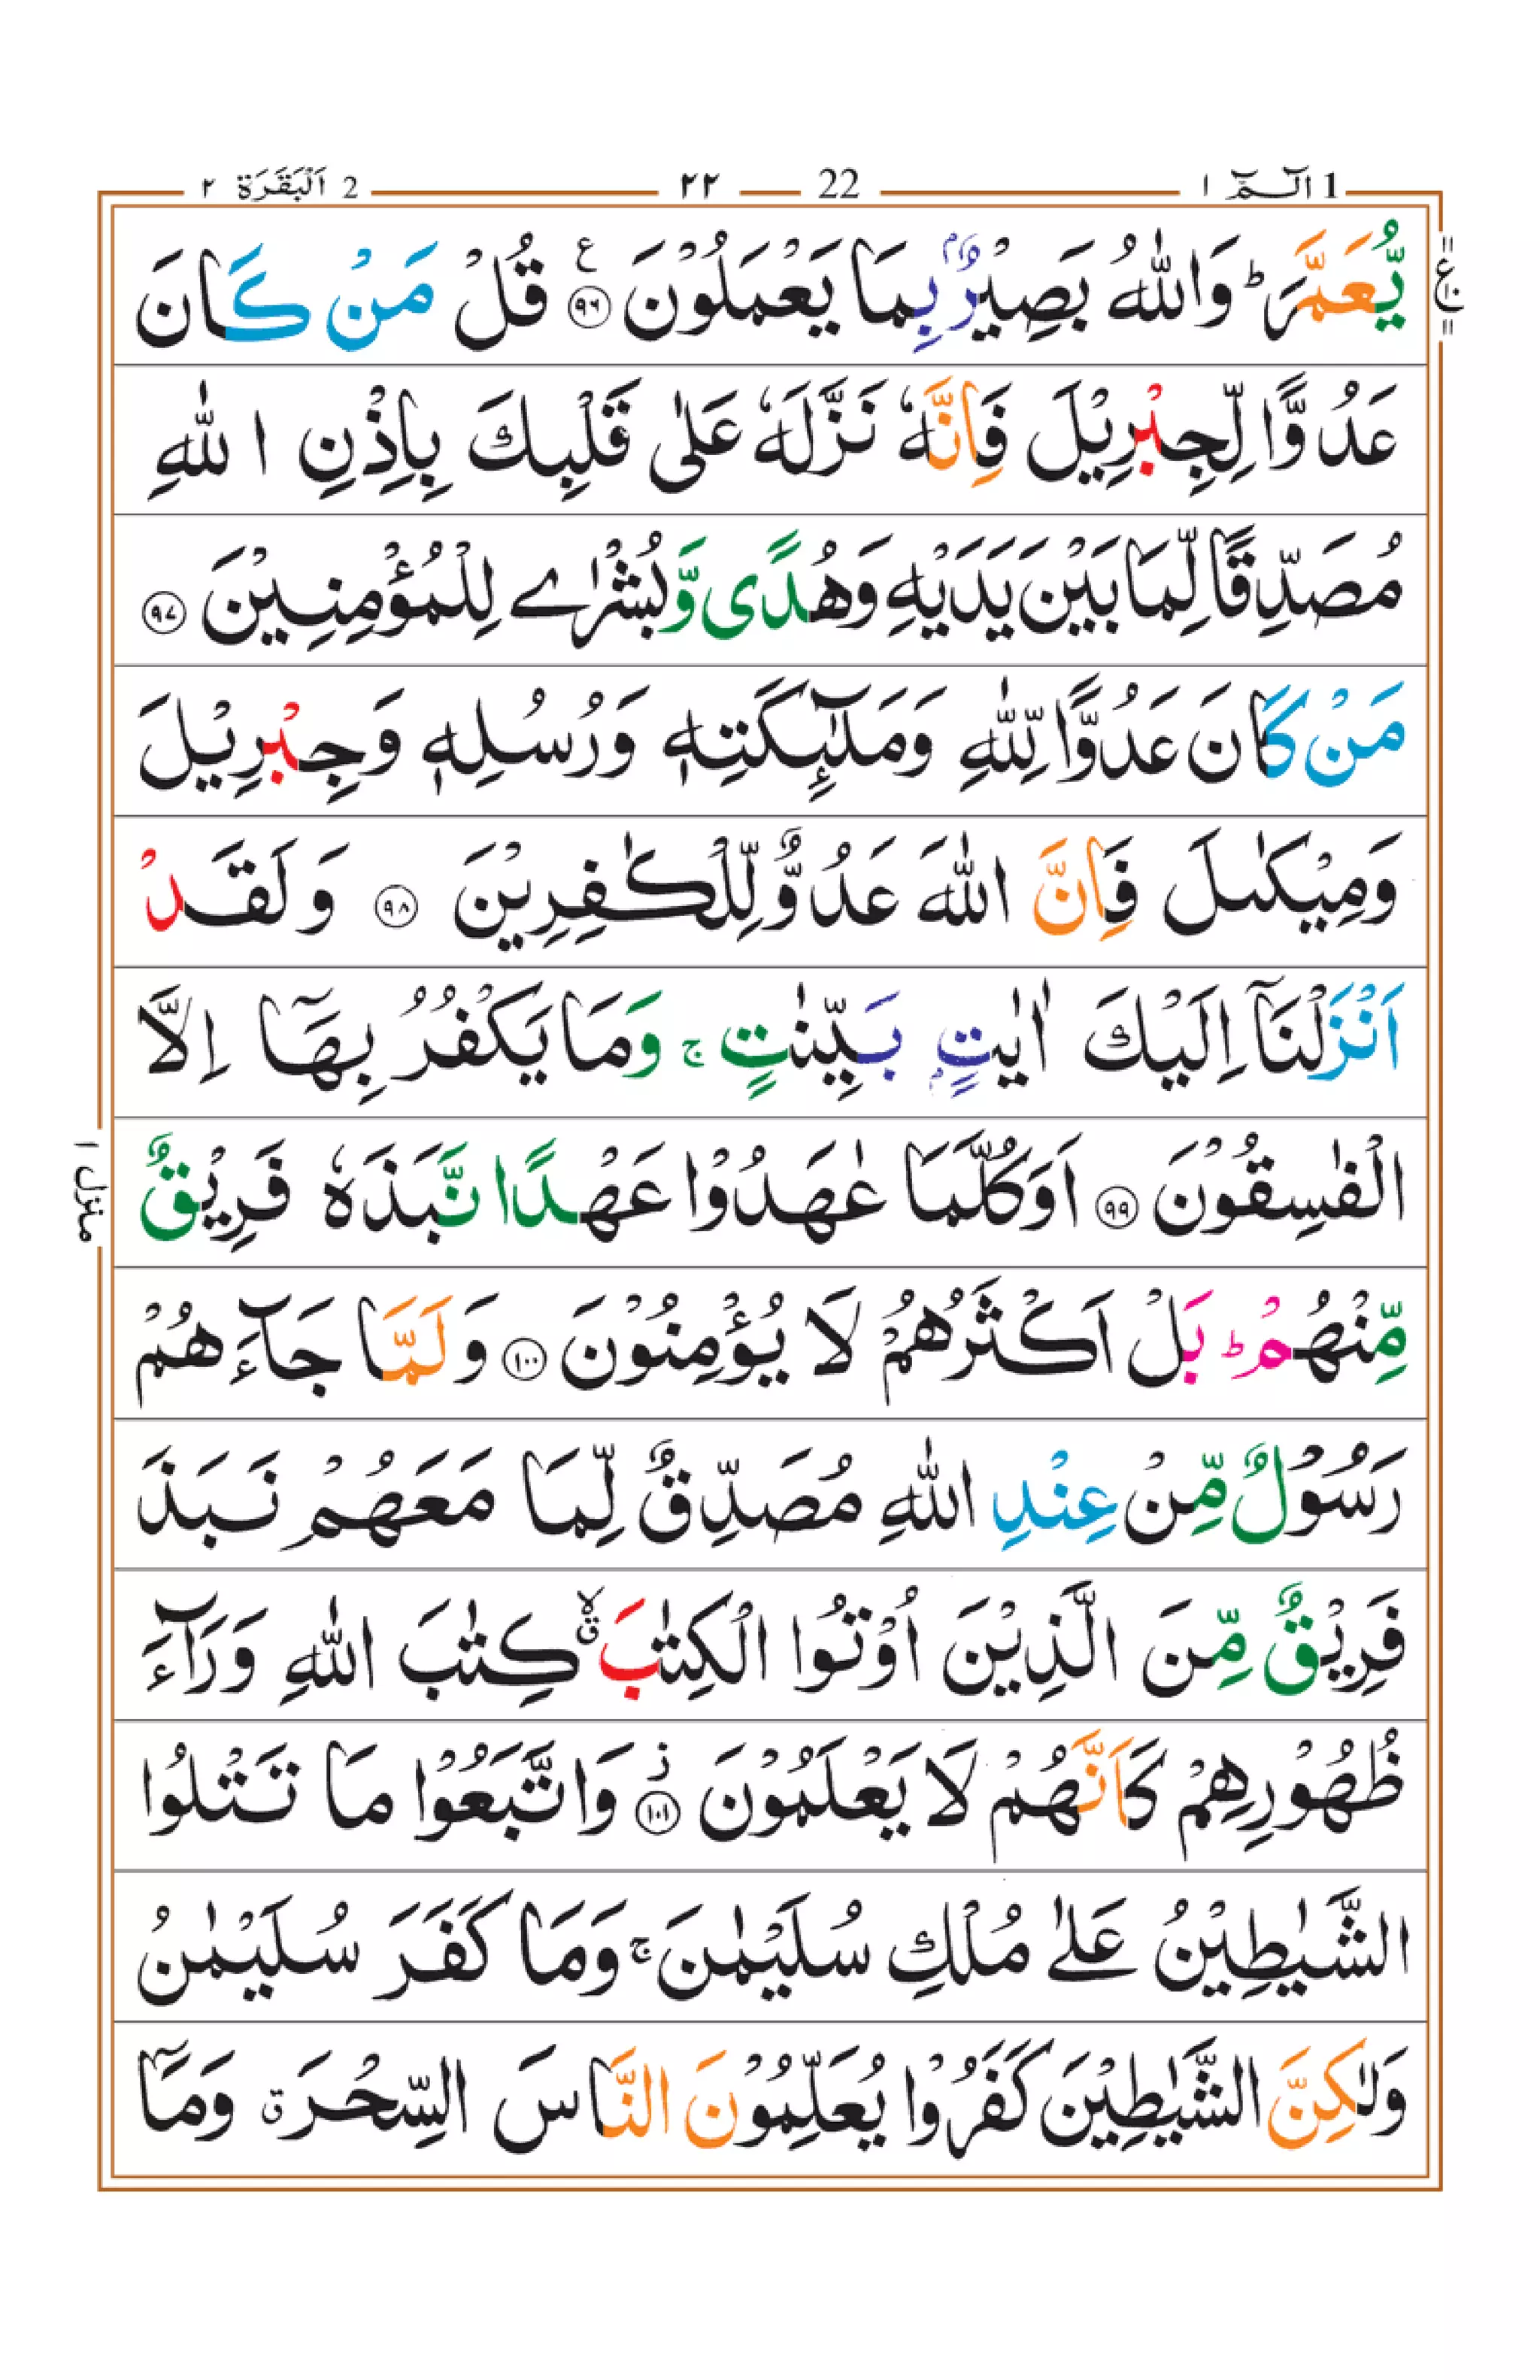 1 الٓـمّٓ ١ 22 ٢٢ 2 اَلْبَقَرَة ٢
يُّعَمَّرَ ؕ وَاللّٰهُ بَصِيْرٌۢ بِمَا يَعْمَلُوْنَ ۧ ﴿٩٦﴾ قُلْ مَنْ كَانَ
ع ١١
عَدُوًّا لِّجِبْرِيْلَ فَاِنَّهٗ نَزَّلَهٗ عَلٰى قَلْبِكَ بِاِذْنِ اللّٰهِ
مُصَدِّقًا لِّمَا بَيْنَ يَدَيْهِ وَهُدًى وَّبُشْرٰى لِلْمُؤْمِنِيْنَ ﴿٩٧﴾
مَنْ كَانَ عَدُوًّا لِّلّٰهِ وَمَلٰٓئِكَتِهٖ وَرُسُلِهٖ وَجِبْرِيْلَ
وَمِيْكٰىلَ فَاِنَّ اللّٰهَ عَدُوٌّ لِّلْكٰفِرِيْنَ ﴿٩٨﴾ وَلَقَدْ
اَنْزَلْنَآ اِلَيْكَ اٰيٰتٍۢ بَيِّنٰتٍ ۚ وَمَا يَكْفُرُ بِهَآ اِلَّا
الْفٰسِقُوْنَ ﴿٩٩﴾ اَوَكُلَّمَا عٰهَدُوْا عَهْدًا نَّبَذَهٗ فَرِيْقٌ
منزل ١
مِّنْهُمْ ؕ بَلْ اَكْثَرُهُمْ لَا يُؤْمِنُوْنَ ﴿١٠٠﴾ وَلَمَّا جَآءَهُمْ
رَسُوْلٌ مِّنْ عِنْدِ اللّٰهِ مُصَدِّقٌ لِّمَا مَعَهُمْ نَبَذَ
فَرِيْقٌ مِّنَ الَّذِيْنَ اُوْتُوا الْكِتٰبَ ۙۗ كِتٰبَ اللّٰهِ وَرَآءَ
ظُهُوْرِهِمْ كَاَنَّهُمْ لَا يَعْلَمُوْنَ ﴿١٠١﴾ وَاتَّبَعُوْا مَا تَتْلُوا
الشَّيٰطِيْنُ عَلٰى مُلْكِ سُلَيْمٰنَ ۚ وَمَا كَفَرَ سُلَيْمٰنُ
وَلٰكِنَّ الشَّيٰطِيْنَ كَفَرُوْا يُعَلِّمُوْنَ النَّاسَ السِّحْرَ ۗ وَمَآ